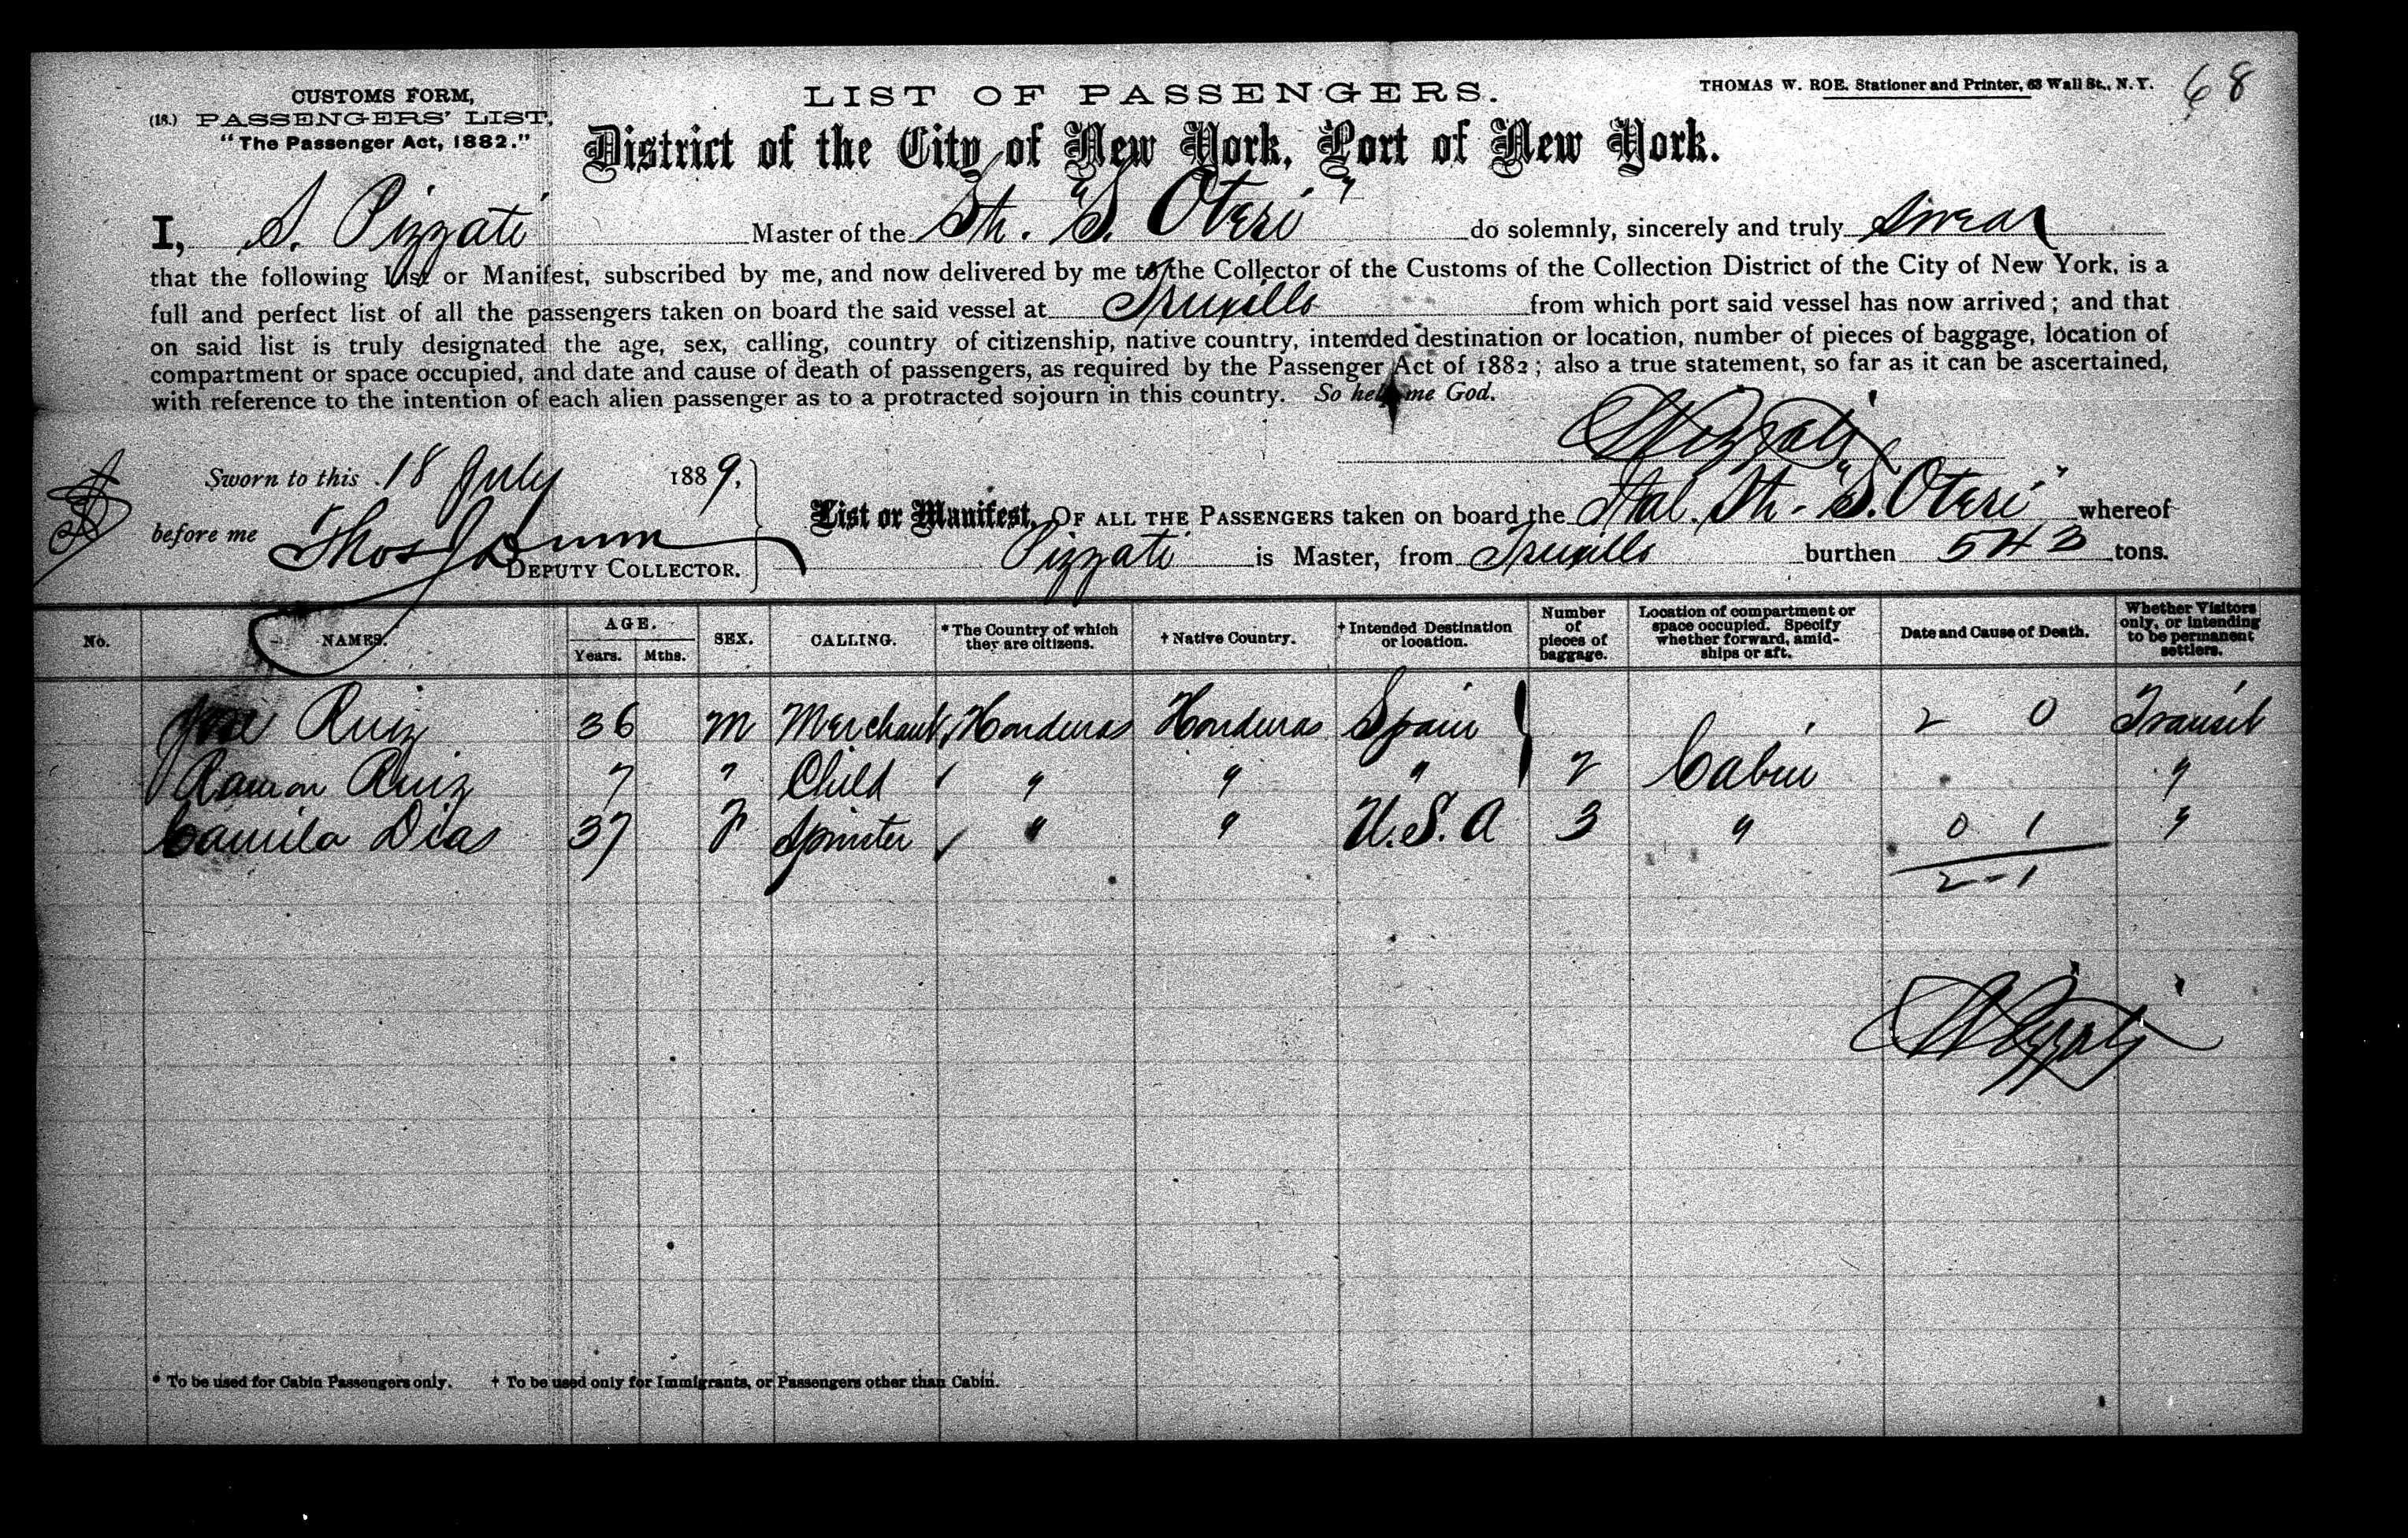 CUSTOMS FORM,
(18.) PASSENGERS' LIST,
"The Passenger Act, 1882."
LIST OF PASSENGERS.
THOMAS W. ROE, Stationer and Printer, 63 Wall St., N.Y.
68
District of the City of New York, Port of New York.
I, S. Pizzati Master of the Str. "S. Oteri" do solemnly, sincerely and truly Swear
that the following List or Manifest, subscribed by me, and now delivered by me to the Collector of the Customs of the Collection District of the City of New York, is a
full and perfect list of all the passengers taken on board the said vessel at Truxillo from which port said vessel has now arrived; and that
on said list is truly designated the age, sex, calling, country of citizenship, native country, intended destination or location, number of pieces of baggage, location of
compartment or space occupied, and date and cause of death of passengers, as required by the Passenger Act of 1882; also a true statement, so far as it can be ascertained,
with reference to the intention of each alien passenger as to a protracted sojourn in this country. So help me God.
S Pizzati
Sworn to this 18 July 1889,
before me Thos J Dunn
DEPUTY COLLECTOR.
List or Manifest, OF ALL THE PASSENGERS taken on board the Ital. Str. "S. Oteri" whereof
Pizzati is Master, from Truxillo burthen 543 tons.
No. NAMES. AGE. Years. Mths. SEX. CALLING. * The Country of which they are citizens. † Native Country. † Intended Destination or location. Number of pieces of baggage. Location of compartment or space occupied. Specify whether forward, amidships or aft. Date and Cause of Death. Whether Visitors only, or intending to be permanent settlers.
José Ruiz 36 M Merchant Honduras Honduras Spain 2 0 Transit
Ramon Ruiz 7 " Child " " " 2 Cabin "
Camila Dias 37 F Spinster " " U.S.A 3 " 0 1 "
2-1
S Pizzati
* To be used for Cabin Passengers only. † To be used only for Immigrants, or Passengers other than Cabin.